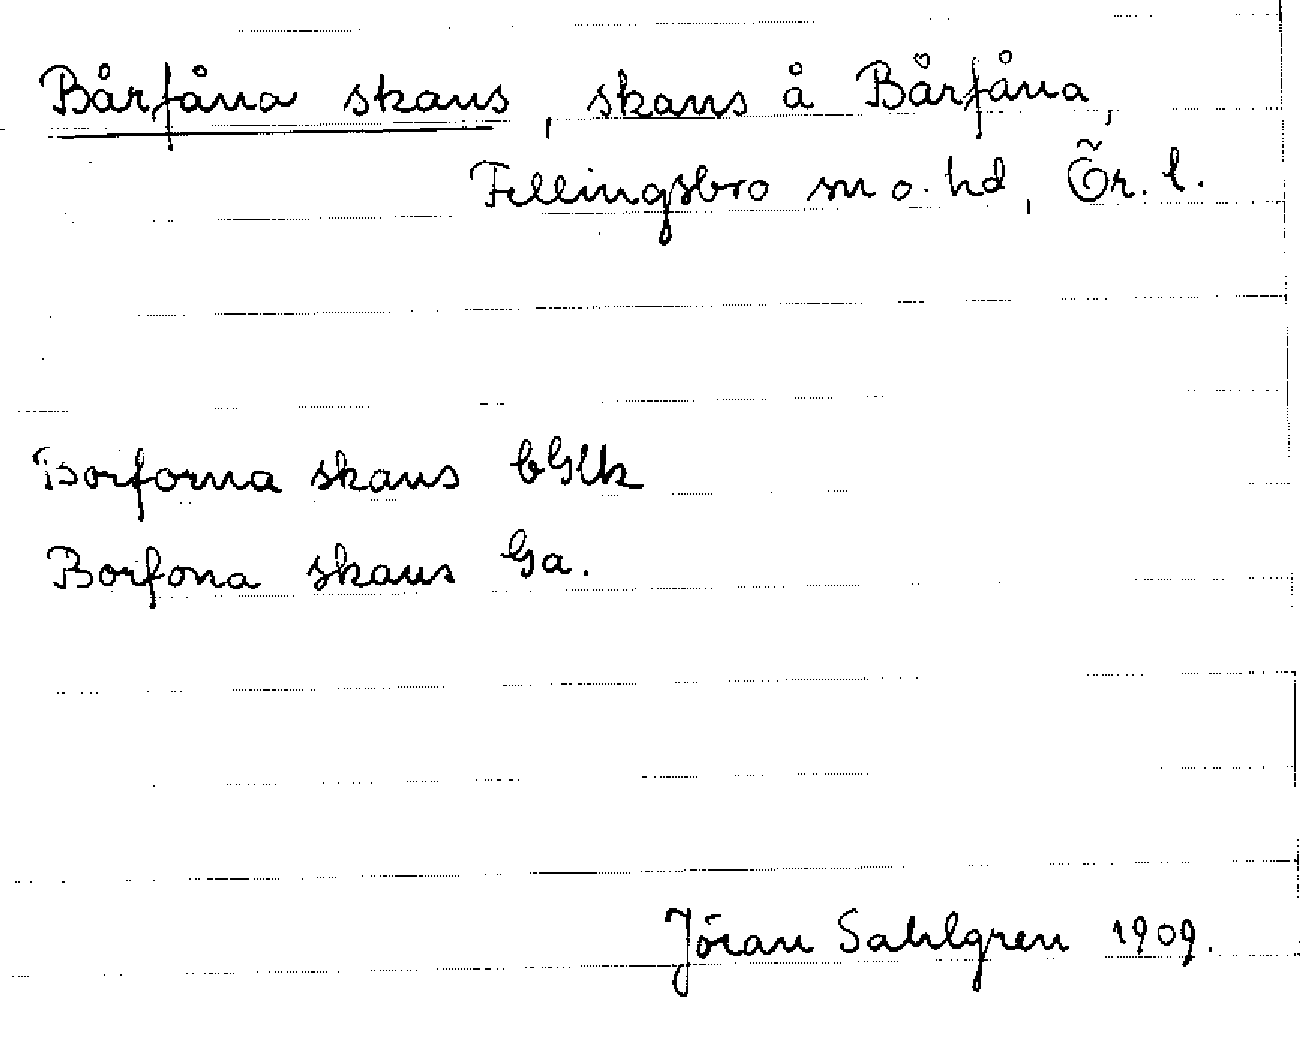 Bårfåna skans, skans å Bårfåna,
Fellingsbro sn o. hd, Ör. l.
Borforna skans bGlk
Borfona skans Ga.
Jöran Sahlgren 1909.